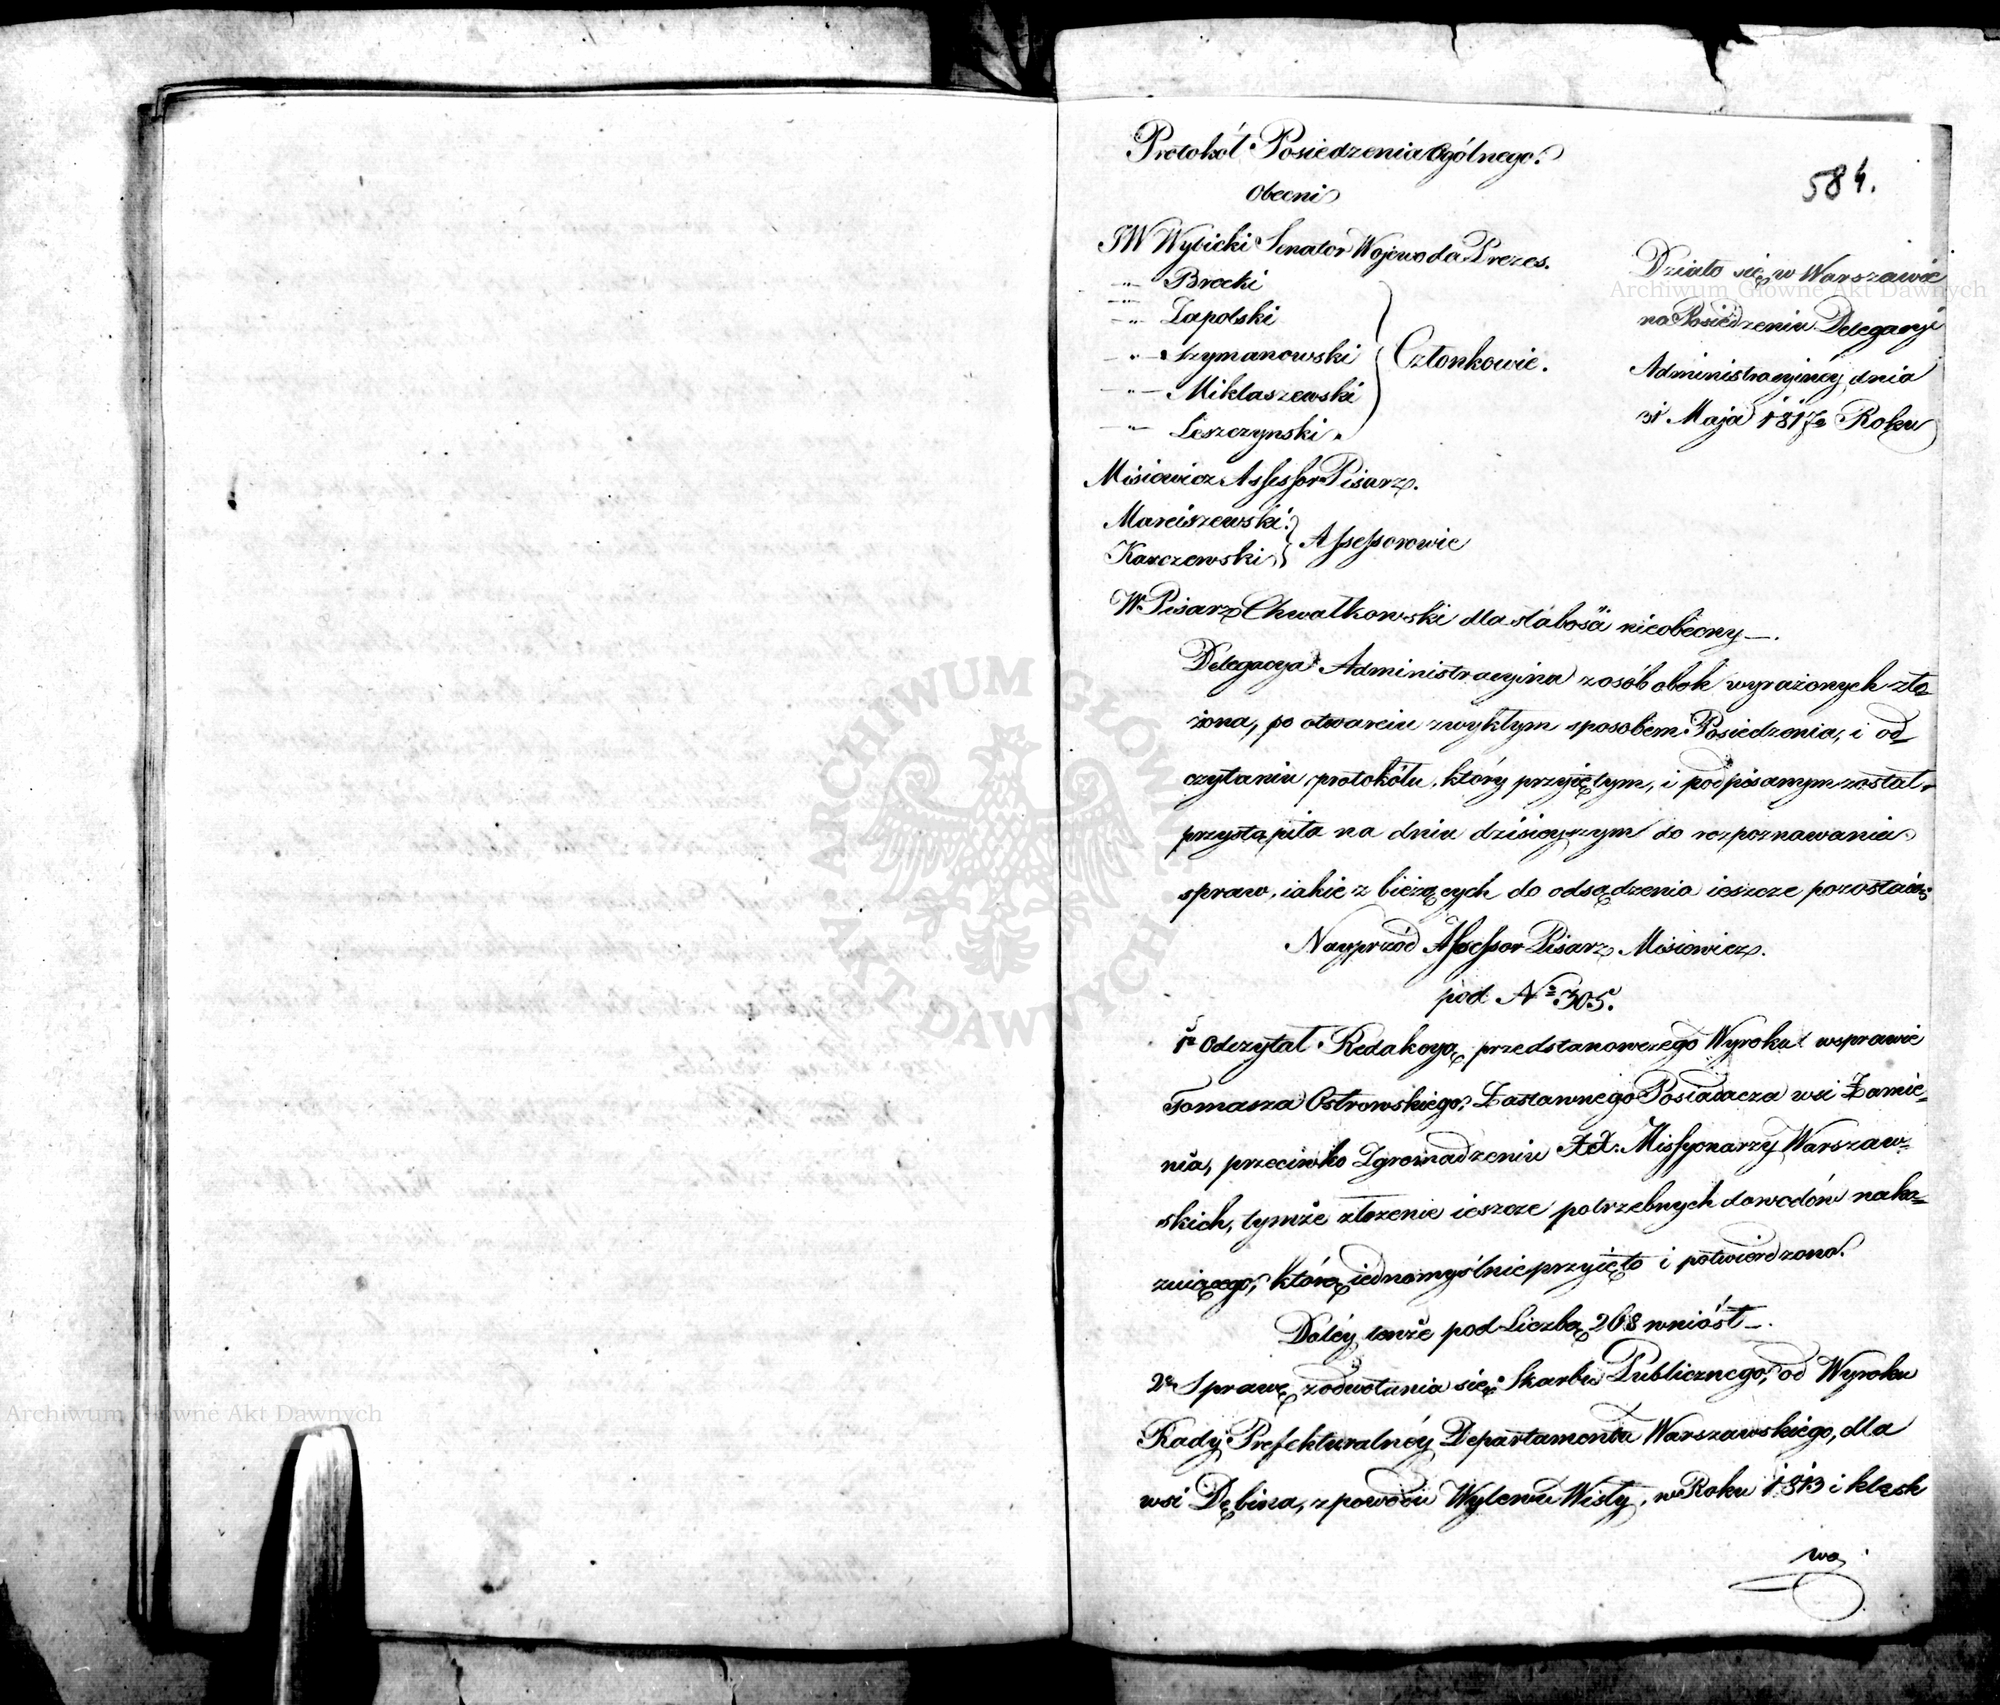 Protokół Posiedzenia Ogólnego.
584.
Obecni
JW Wybicki Senator Wojewoda Prezes.
-"- Brocki
-"- Zapolski
-"- Szymanowski
-"- Miklaszewski
-"- Leszczynski.
Członkowie.
Działo się w Warszawie
na Posiedzeniu Delegacyi
Administracyiney dnia
31 Maja 1817o Roku
Misiewicz Assessor Pisarz.
Marciszewski
Karczewski
Assessorowie
W. Pisarz Chwalkowski dla słabości nieobecny —.
Delegacya Administracyina z osób obok wyrażonych zło=
żona, po otwarciu zwykłym sposobem Posiedzenia, i od=
czytaniu protokółu, który przyiętym, i podpisanym został,
przystąpiła na dniu dzisieyszym do rozpoznawania
spraw, iakie z bieżących do odsądzenia ieszcze pozostaią:
Nayprzód Assessor Pisarz Misiewicz.
pod No 305.
1o Odczytał Redakcyą przedstanowczego Wyroku w sprawie
Tomasza Ostrowskiego, Zastawnego Posiadacza wsi Zamie=
nia, przeciwko Zgromadzeniu XX. Missyonarzy Warszaw=
skich, tymże złożenie ieszcze potrzebnych dowodów naka=
zuiącego, którą iednomyślnie przyięto i potwierdzono.
Daléy tenże pod Liczbą 268 wniósł —.
2o Sprawę z odwołania się Skarbu Publicznego, od Wyroku
Rady Prefekturalnéy Departamentu Warszawskiego, dla
wsi Dębina, z powodu Wylewu Wisły, w Roku 1813 i klęsk
Archiwum Główne Akt Dawnych
Archiwum Główne Akt Dawnych
ARCHIWUM GŁÓWNE AKT DAWNYCH